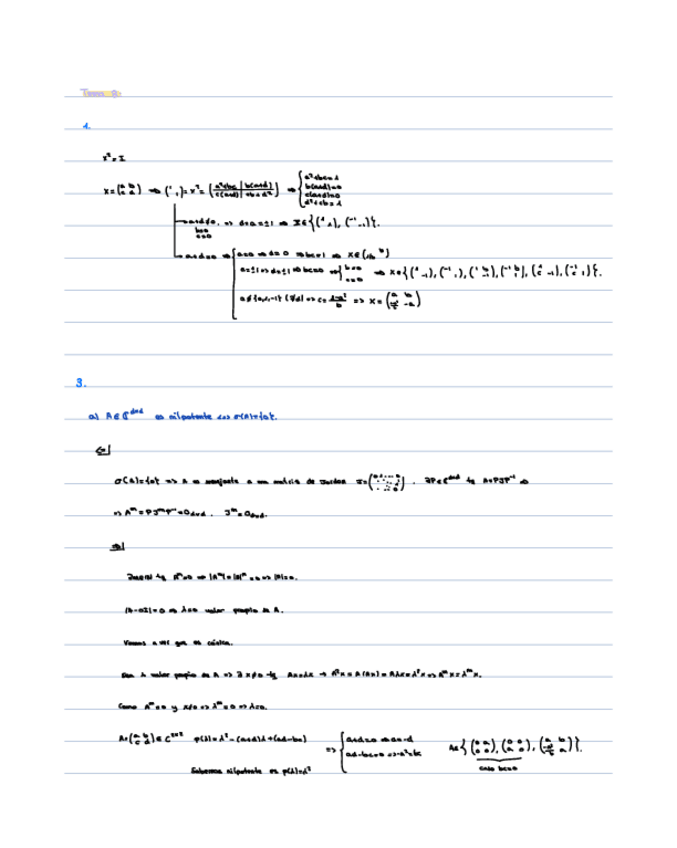 Tema 8:
1.
X² = I
X = (a b / c d) ⇒ (1 1) = X² = (a²+bc | b(a+d) / c(a+d) | cb+d²) ⇒ { a²+bc=1 b(a+d)=0 c(a+d)=0 d²+cb=1
a+d≠0. ⇒ d=a=±1 ⇒
b=0
c=0
a+d=0 ⇒ { a=0 ⇒ d=0 ⇒ bc=1
a=±1 ⇒ d=±1 ⇒ bc=0 ⇒ { b=0 c=0
3.
a) A ∈ ℂ^{dxd} es nilpotente ⇔ σ(A)={0}.
⇐|
σ(A)={0} ⇒ A es semejante a una matriz de Jordan J= . ∃P∈ℂ^{dxd} tq A=PJP⁻¹ ⇒
⇒ A^m = PJ^mP⁻¹ = 0_{dxd} . J^m = 0_{dxd}.
⇒|
∃m∈ℕ tq A^m=0 ⇒ |A^m|=|A|^m=0 ⇒ |A|=0.
|A-0I|=0 ⇒ λ=0 valor propio de A.
Veamos a ver que es único.
Sea λ valor propio de A ⇒ ∃ x≠0 tq Ax=λx ⇒ A²x = A(Ax) = Aλx = λ²x ⇒ A^m x = λ^m x.
Como A^m=0 y x≠0 ⇒ λ^m=0 ⇒ λ=0.
A=(a b / c d) ∈ ℂ^{2x2} p(λ)=λ²-(a+d)λ+(ad-bc) ⇒ { a+d=0 ⇒ a=-d ad-bc=0 ⇒ -a²=bc
Sabemos nilpotente ⇔ p(λ)=λ²
caso bc=0